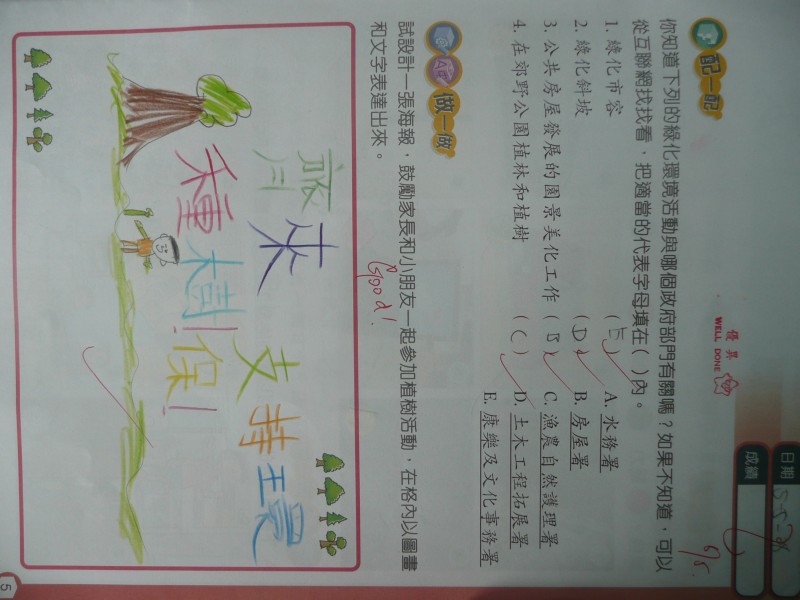 日期
成績
優異
WELL DONE
配一配
你知道下列的綠化環境活動與哪個政府部門有關嗎？如果不知道，可以
從互聯網找找看，把適當的代表字母填在（ ）內。
1. 綠化市容 （E） A. 水務署
2. 綠化斜坡 （D） B. 房屋署
3. 公共房屋發展的園景美化工作 （B） C. 漁農自然護理署
4. 在郊野公園植林和植樹 （C） D. 土木工程拓展署
E. 康樂及文化事務署
做一做
試設計一張海報，鼓勵家長和小朋友一起參加植樹活動，在格內以圖畫
和文字表達出來。
Good!
來 支持環
種樹!保!
5